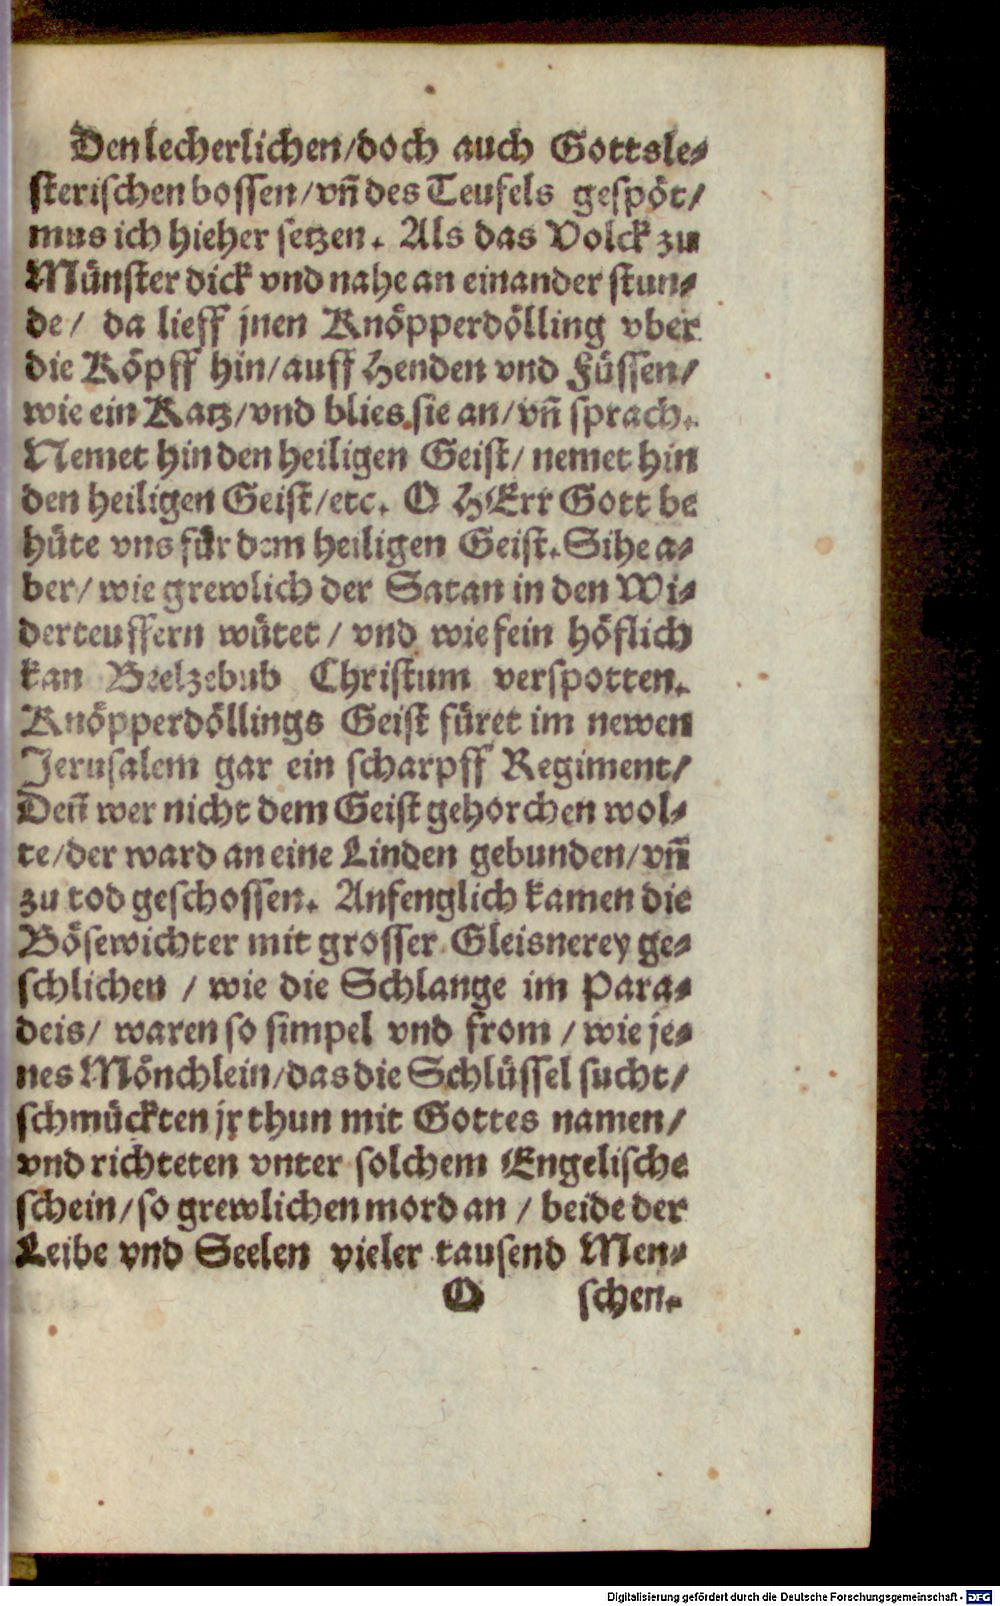 Den lecherlichen/doch auch Gottsle-
sterischen bossen/vñ des Teufels gespöt/
mus ich hieher setzen. Als das Volck zu
Münster dick vnd nahe an einander stun-
de/ da lieff jnen Knöpperdölling vber
die Köpff hin/auff Henden vnd Füssen/
wie ein Katz/vnd blies sie an/vñ sprach.
Nemet hin den heiligen Geist/ nemet hin
den heiligen Geist/etc. O HErr Gott be
hüte vns für dem heiligen Geist. Sihe a-
ber/ wie grewlich der Satan in den Wi-
derteuffern wütet / vnd wie fein höflich
kan Beelzebub Christum verspotten.
Knöpperdöllings Geist füret im newen
Jerusalem gar ein scharpff Regiment/
Deñ wer nicht dem Geist gehorchen wol-
te/der ward an eine Linden gebunden/vñ
zu tod geschossen. Anfenglich kamen die
Bösewichter mit grosser Gleisnerey ge-
schlichen / wie die Schlange im Para-
deis/ waren so simpel vnd from / wie je-
nes Mönchlein/das die Schlüssel sucht/
schmückten jr thun mit Gottes namen/
vnd richteten vnter solchem Engelische
schein/so grewlichen mord an / beide der
Leibe vnd Seelen vieler tausend Men-
O schen.
Digitalisierung gefördert durch die Deutsche Forschungsgemeinschaft - DFG